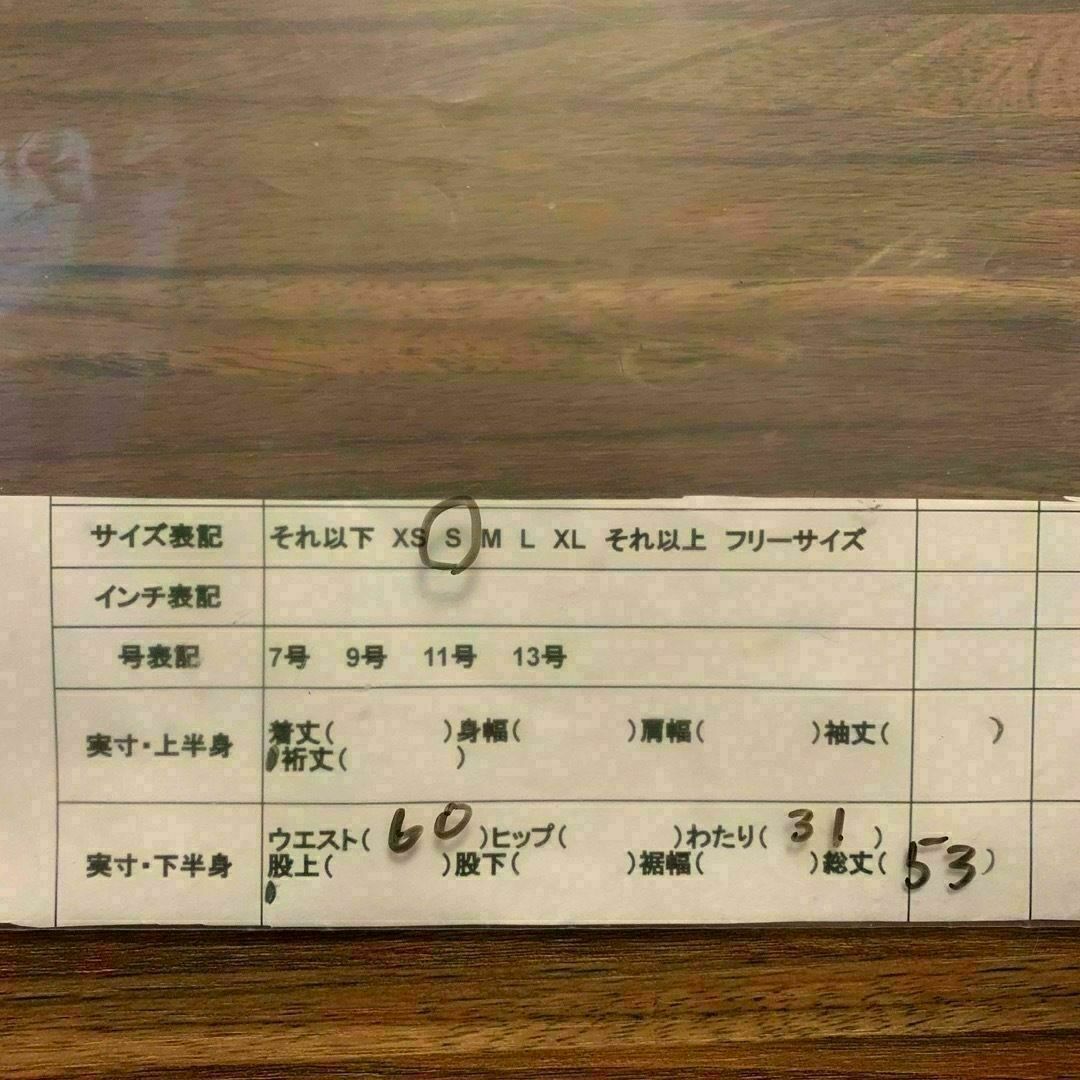 サイズ表記 それ以下 XS S M L XL それ以上 フリーサイズ
インチ表記
号表記 7号 9号 11号 13号
実寸・上半身 着丈( )身幅( )肩幅( )袖丈( )
裄丈( )
実寸・下半身 ウエスト( 60 )ヒップ( )わたり( 31 )
股上( )股下( )裾幅( )総丈( 53 )